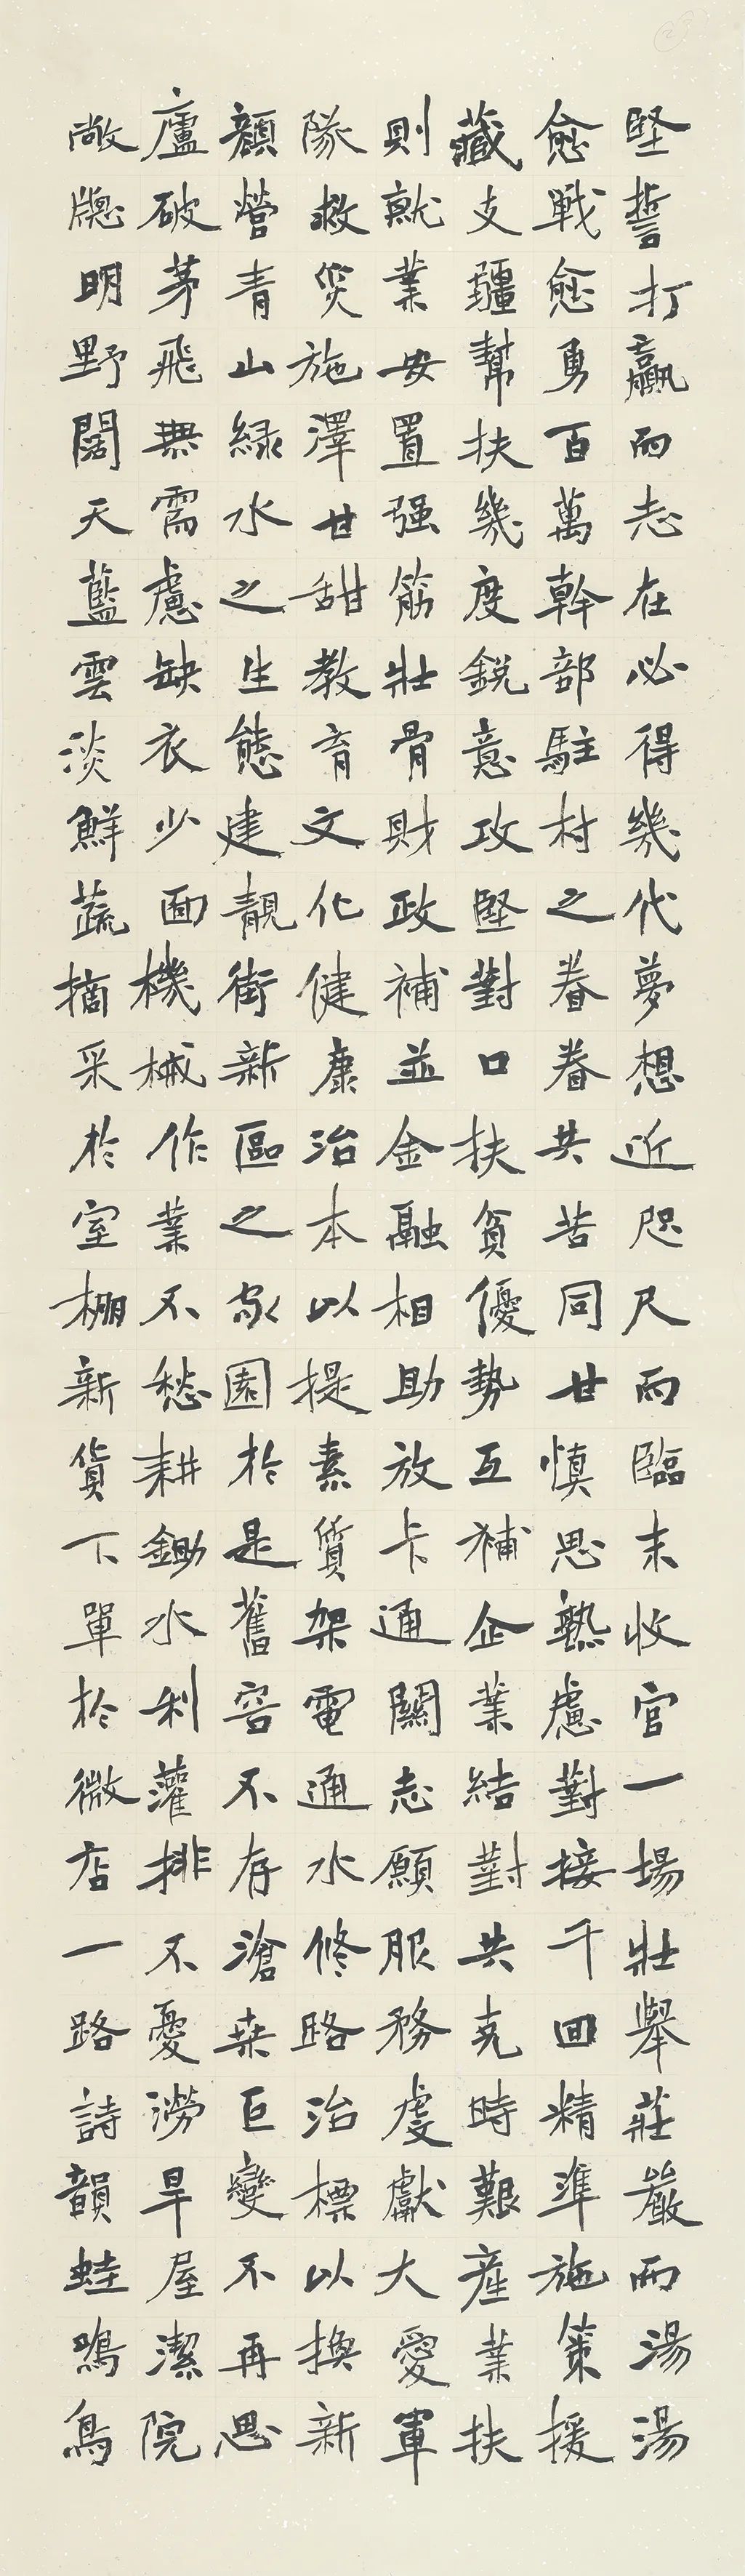 堅誓打贏而志在必得幾代夢想近咫尺而臨末收官一場壯舉莊嚴而湯湯
愈戰愈勇百萬幹部駐村之眷眷共苦同甘慎思熟慮對接千回精準施策援
藏支疆幫扶幾度銳意攻堅對口扶貧優勢互補企業結對共克時艱產業扶
則就業安置强筋壯骨財政補並金融相助放卡通關志願服務虔獻大愛軍
隊救災施澤甘甜教育文化健康治本以提素質架電通水修路治標以換新
顏營青山綠水之生態建靚街新區之家園於是舊容不存滄桑巨變不再思
廬破茅飛無需慮缺衣少面機械作業不愁耕鋤水利灌排不憂澇旱屋潔院
敞牕明野闊天藍雲淡鮮蔬摘采於室棚新貨下單於微店一路詩韻蛙鳴鳥